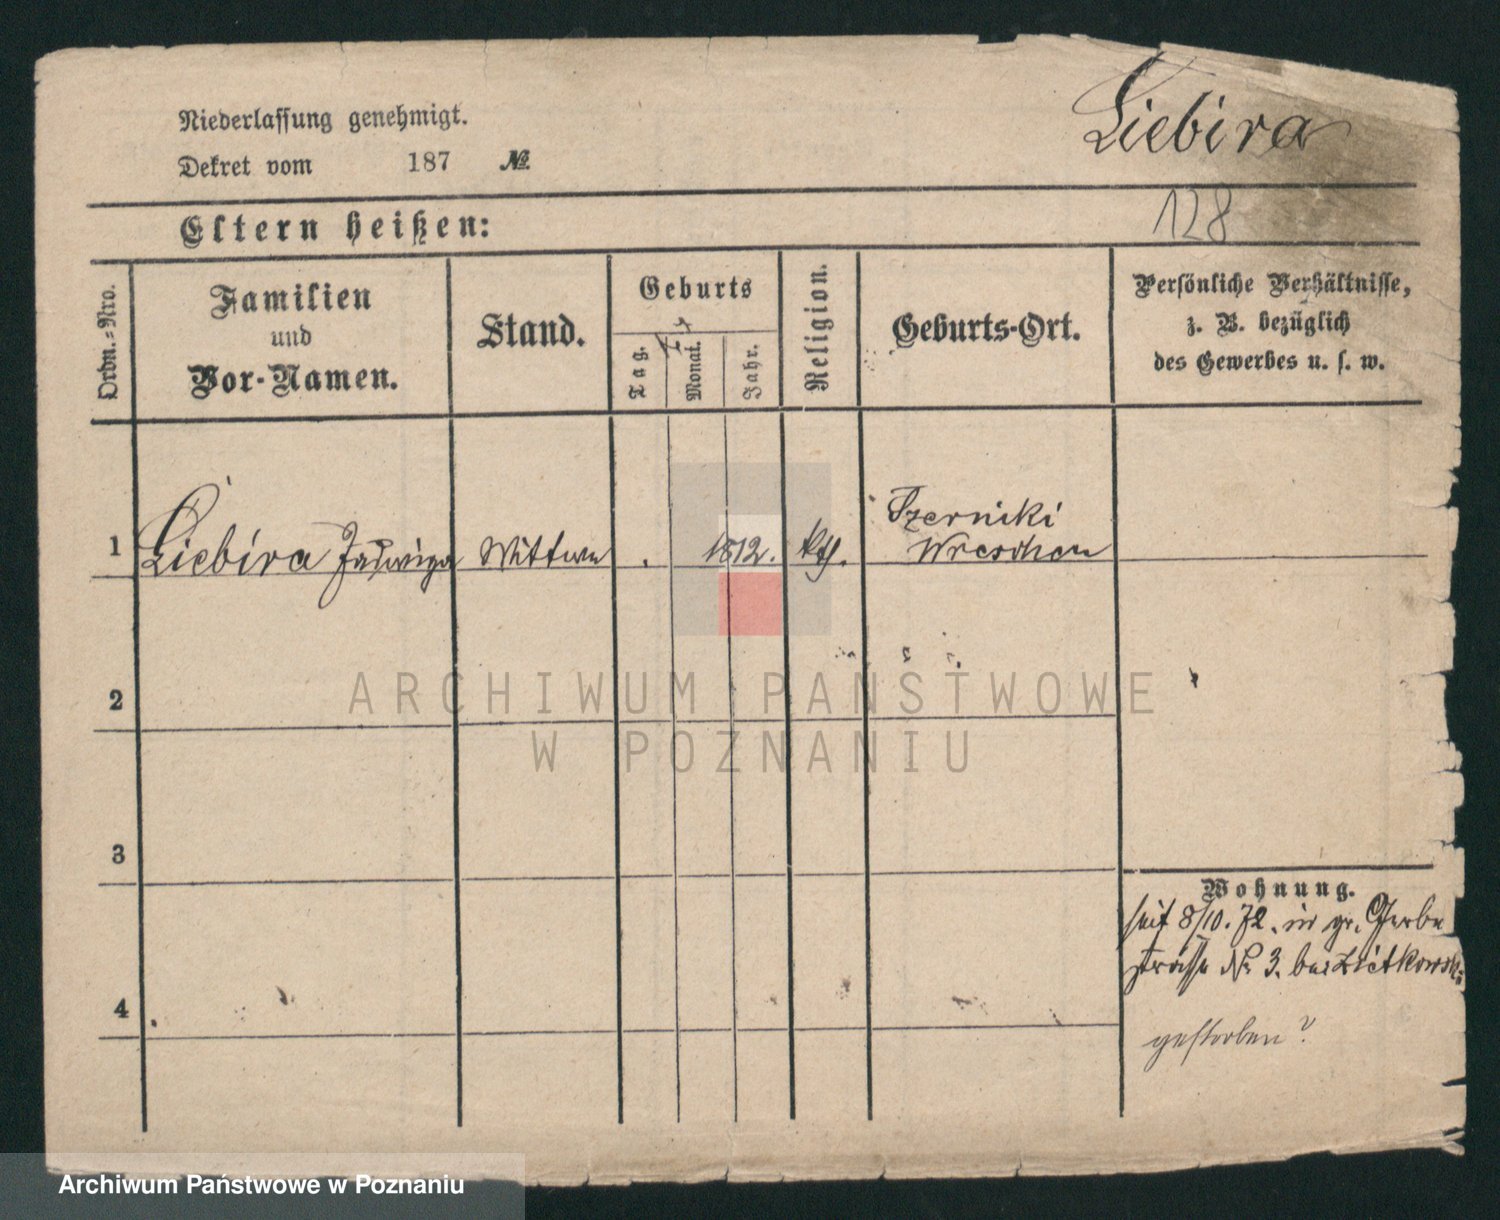 Liebira
Niederlassung genehmigt.
Dekret vom 187 №
128
Eltern heißen:
Ordn.-Nro.
Familien
und
Vor-Namen.
Stand.
Geburts
Tag.
Monat.
Jahr.
Religion.
Geburts-Ort.
Persönliche Verhältnisse,
z. B. bezüglich
des Gewerbes u. s. w.
1 Liebira Jadwiga Wittwe 1812. kth.
Czerniki
Wreschen
2
3
4
Wohnung.
seit 8/10. 72. in gr. Gerber
strasse № 3. bei
gestorben?
ARCHIWUM PAŃSTWOWE
W POZNANIU
Archiwum Państwowe w Poznaniu